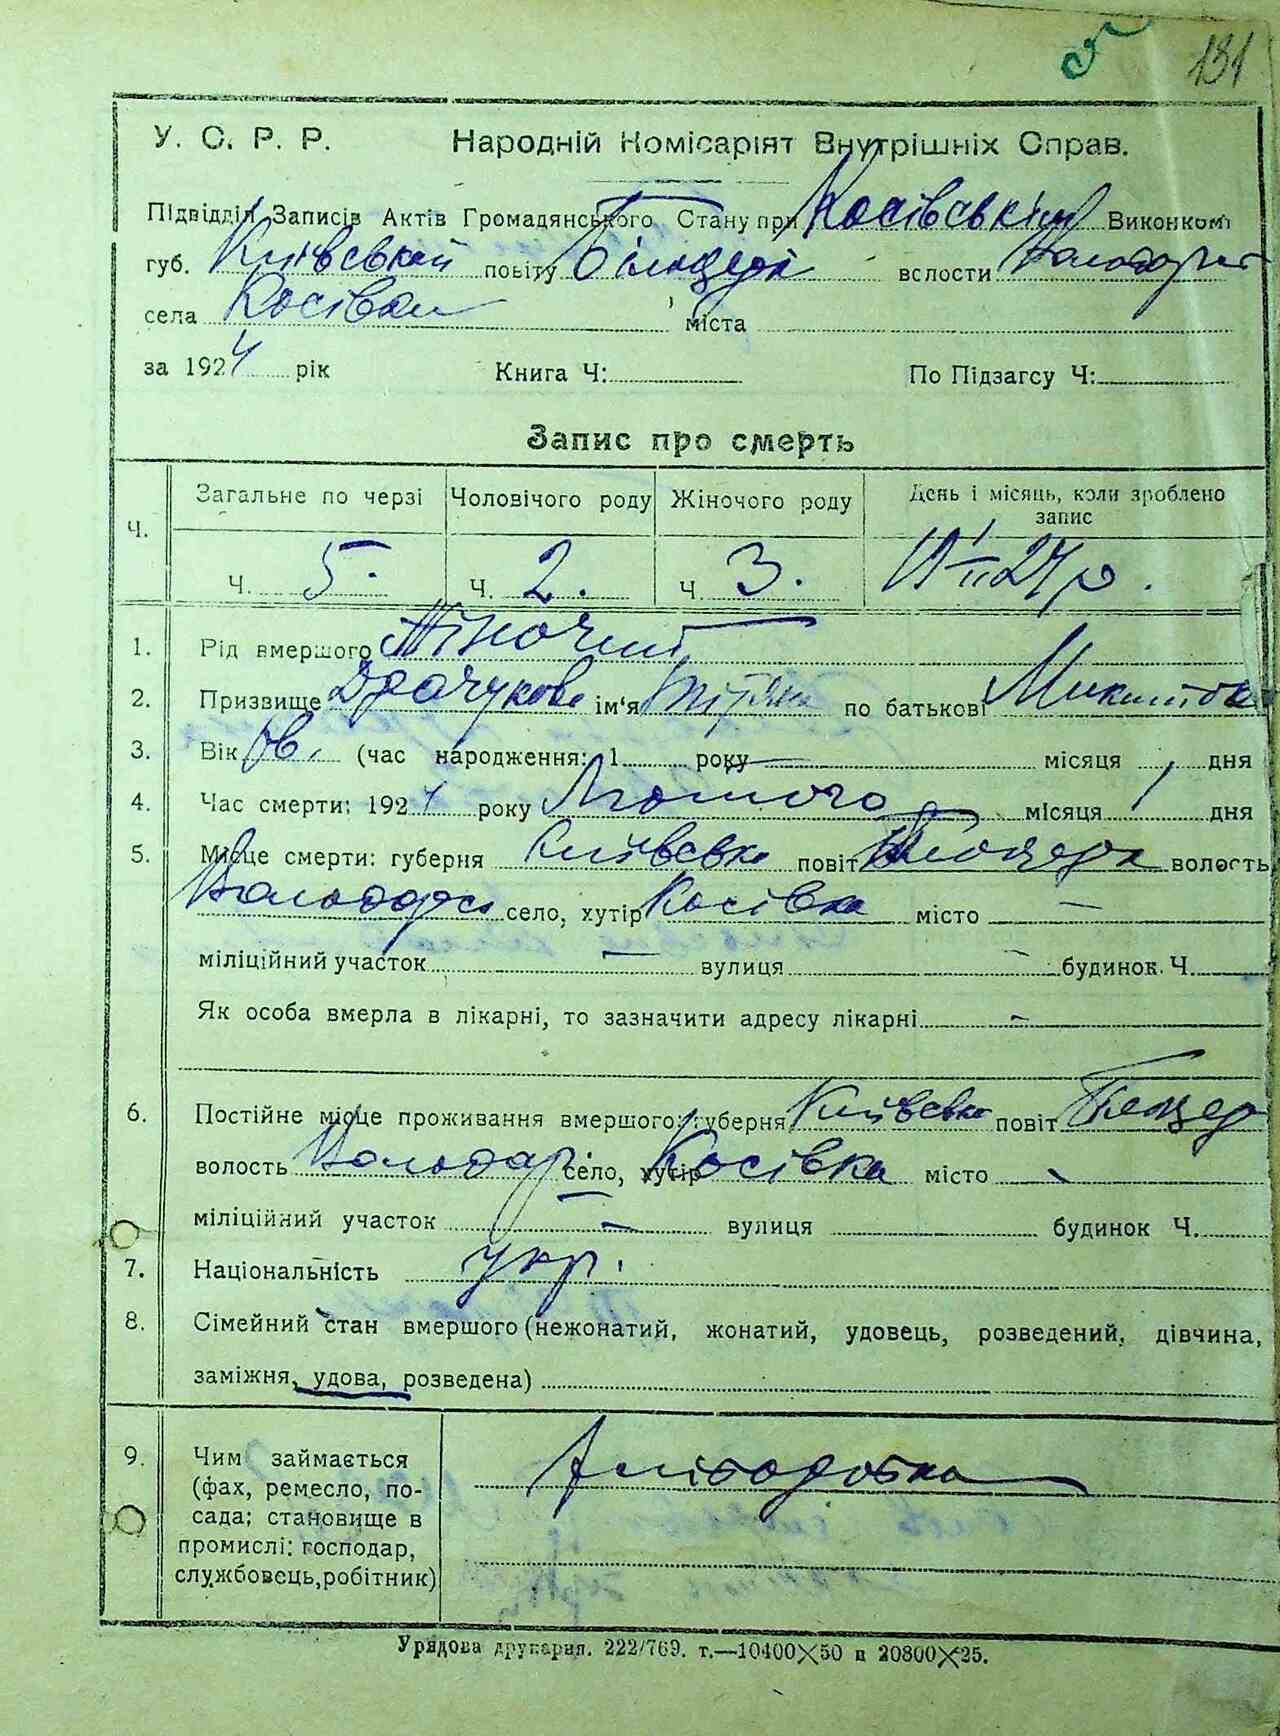 131
У. С. Р. Р. Народній Комісаріят Внутрішніх Справ.
Підвідділ Записів Актів Громадянського Стану при Косівський Виконкомі
губ. Київській повіту Білоцерк вслости Володарськ
села Косівки міста
за 1924 рік Книга Ч: По Підзагсу Ч:
Запис про смерть
Ч. Загальне по черзі Чоловічого роду Жіночого роду День і місяць, коли зроблено запис
Ч. 5. Ч. 2. Ч. 3. 19 1/II 24 р.
1. Рід вмершого Жіночий
2. Призвище Драчукова ім'я по батькові
3. Вік (час народження: 1 року місяця дня
4. Час смерти: 1924 року Лютого місяця 1 дня
5. Місце смерти: губерня Київська повіт Білоцерк волость
Володарс село, хутір Косівка місто —
міліційний участок — вулиця — будинок. Ч.
Як особа вмерла в лікарні, то зазначити адресу лікарні -
6. Постійне місце проживання вмершого: губерня Київська повіт Білоцер
волость Володар село, хутір Косівка місто -
міліційний участок — вулиця будинок Ч.
7. Національність укр.
8. Сімейний стан вмершого (нежонатий, жонатий, удовець, розведений, дівчина,
заміжня, удова, розведена)
9. Чим займається
(фах, ремесло, по-
сада; становище в
промислі: господар,
службовець, робітник)
Урядова друкарня. 222/769. т.—10400×50 и 20800×25.